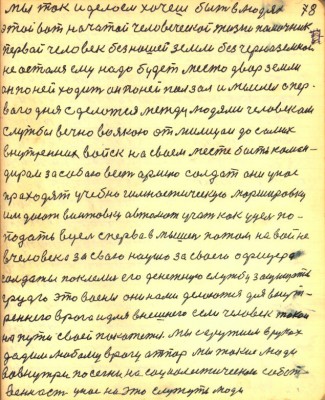 мы так и делаем хочеш быть в людях 78
этой вот начатой человеческой жизни помочник
первой человек без нашей земли без чернозёмной
не остался ему надо будет место двор земли
он по ней ходить он по ней ползал и мыслил с пер-
вого дня сделотся между людями человеком
службы вечно воякою от милиции до самих
внутренних войск на своем месте быть коман-
диром за собою вест армию солдат они уже
проходят учебно гимнастическую моршировку
им дают винтовку автомат учат как
подать в цел сперва в мышен потом на войне
в человека за свою науку за своего офицера
солдаты его денежную службу защищать
это воены они нами делаются для внут-
реннего врага и для внешнего если человек такой
на пути своей мы служим в руках
дадим любому врагу отпор мы такие люди
во внутри посягни на социалистическую собст-
венност уже на это служут люди